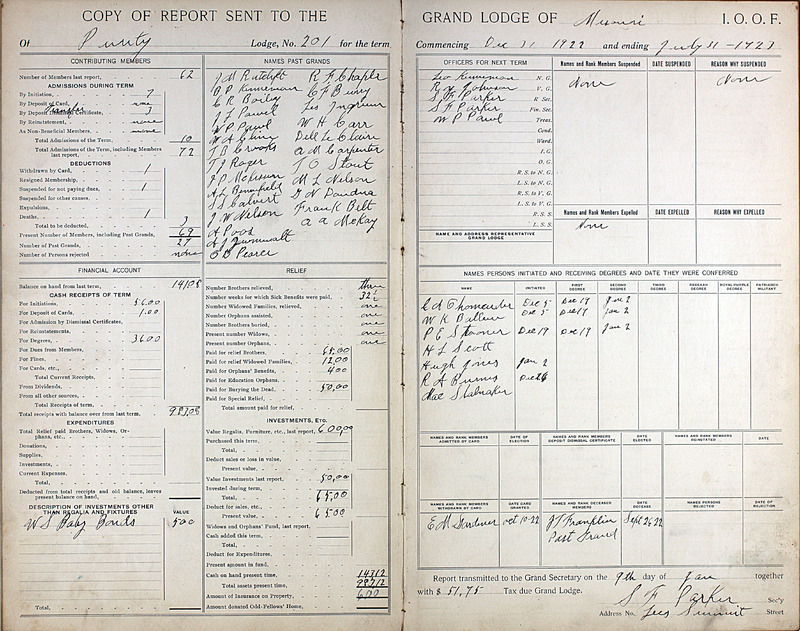 COPY OF REPORT SENT TO THE
Of Purity Lodge, No. 201 for the term
CONTRIBUTING MEMBERS
Number of Members last report, 62
ADMISSIONS DURING TERM
By Initiation, 7
By Deposit of Card, none
By Deposit Dismissal Certificate, 3
Transfer
By Reinstatement, none
As Non-Beneficial Members, none
Total Admissions of the Term, 10
Total Admissions of the Term, including Members last report, 72
DEDUCTIONS
Withdrawn by Card, 1
Resigned Membership,
Suspended for not paying dues, 1
Suspended for other causes,
Expulsions,
Deaths, 1
Total to be deducted, 3
Present Number of Members, including Past Grands, 69
Number of Past Grands, 27
Number of Persons rejected none
NAMES PAST GRANDS
J M Ratcliff
O P Kinneman
C R Bailey
J L Powel
W P Powl
W A Cline
T B Croops
T J Roger
J P McKisson
H L Bennefield
S S Calvert
J W Nelson
A Pood
A J Zumwalt
O D Pearce
R F Chaple
C F Bundy
Les Ingrum
W H Carr
Dell Le Claire
A M Carpenter
T O Stout
M L Nelson
G N Dowdna
Frank Belt
A A McKay
FINANCIAL ACCOUNT
Balance on hand from last term,
CASH RECEIPTS OF TERM
For Initiations, 56.00
For Deposit of Cards, 1.00
For Admission by Dismissal Certificates,
For Reinstatements,
For Degrees, 36.00
For Dues from Members,
For Fines,
For Cards, etc.,
Total Current Receipts,
From Dividends,
From all other sources,
Total Receipts of term,
Total receipts with balance over from last term,
EXPENDITURES
Total Relief paid Brothers, Widows, Orphans, etc.,
Donations,
Supplies,
Investments,
Current Expenses,
Total,
Deducted from total receipts and old balance, leaves present balance on hand,
DESCRIPTION OF INVESTMENTS OTHER THAN REGALIA AND FIXTURES VALUE
W S Baby Bonds 500
Total,
RELIEF
Number Brothers relieved, three
Number weeks for which Sick Benefits were paid, 32
Number Widowed Families, relieved, one
Number Orphans assisted, one
Number Brothers buried, one
Present number Widows, one
Present number Orphans, one
Paid for relief Brothers, 65.00
Paid for relief Widowed Families, 12.00
Paid for Orphans' Benefits, 400
Paid for Education Orphans,
Paid for Burying the Dead, 50,00
Paid for Special Relief,
Total amount paid for relief,
INVESTMENTS, ETC.
Value Regalia, Furniture, etc., last report, 600,00
Purchased this term,
Total,
Deduct sales or loss in value,
Present value,
Value Investments last report, 50,00
Invested during term,
Total, 65,00
Deduct for sales, etc.,
Present value, 6500
Widows and Orphans' Fund, last report,
Cash added this term,
Total,
Deduct for Expenditures,
Present amount in fund,
Cash on hand present time, 14312
Total assets present time,
Amount of Insurance on Property, 600
Amount donated Odd-Fellows' Home,
GRAND LODGE OF Missouri I. O. O. F.
Commencing Dec 31 1922 and ending July 31 - 1923
OFFICERS FOR NEXT TERM
Leo Kinneman N. G.
Roy Johnson V. G.
S F Parker R Sec.
S F Parker Fin. Sec.
W P Powl Treas.
Cond.
Ward.
I. G.
O. G.
R. S. to N. G.
L. S. to N. G.
R. S. to V. G.
L. S. to V. G.
R. S. S.
L. S. S.
NAME AND ADDRESS REPRESENTATIVE GRAND LODGE
Names and Rank Members Suspended DATE SUSPENDED REASON WHY SUSPENDED
None None
Names and Rank Members Expelled DATE EXPELLED REASON WHY EXPELLED
None
NAMES PERSONS INITIATED AND RECEIVING DEGREES AND DATE THEY WERE CONFERRED
NAME INITIATED FIRST DEGREE SECOND DEGREE THIRD DEGREE REBEKAH DEGREE ROYAL PURPLE DEGREE PATRIARCH MILITANT
Dec 5 Dec 19 Jan 2
Dec 5 Dec 19 Jan 2
P E Stooner Dec 19 Dec 19 Jan 2
H L Scott
Hugh Jones Jan 2
R A Burns Dec 26
Rae Slabaker
NAMES AND RANK MEMBERS ADMITTED BY CARD DATE OF ELECTION NAMES AND RANK MEMBERS DEPOSIT DISMISSAL CERTIFICATE DATE ELECTED NAMES AND RANK MEMBERS REINSTATED DATE
NAMES AND RANK MEMBERS WITHDRAWN BY CARD DATE CARD GRANTED NAMES AND RANK DECEASED MEMBERS DATE DECEASE NAMES PERSONS REJECTED DATE OF REJECTION
E M Gardner Oct 10-22 J T Franklin Sept 26 22
Past Grand
Report transmitted to the Grand Secretary on the 9th day of Jan together
with $ 51,75 Tax due Grand Lodge.
S F Parker Sec'y
Address No. Lees Summit Street